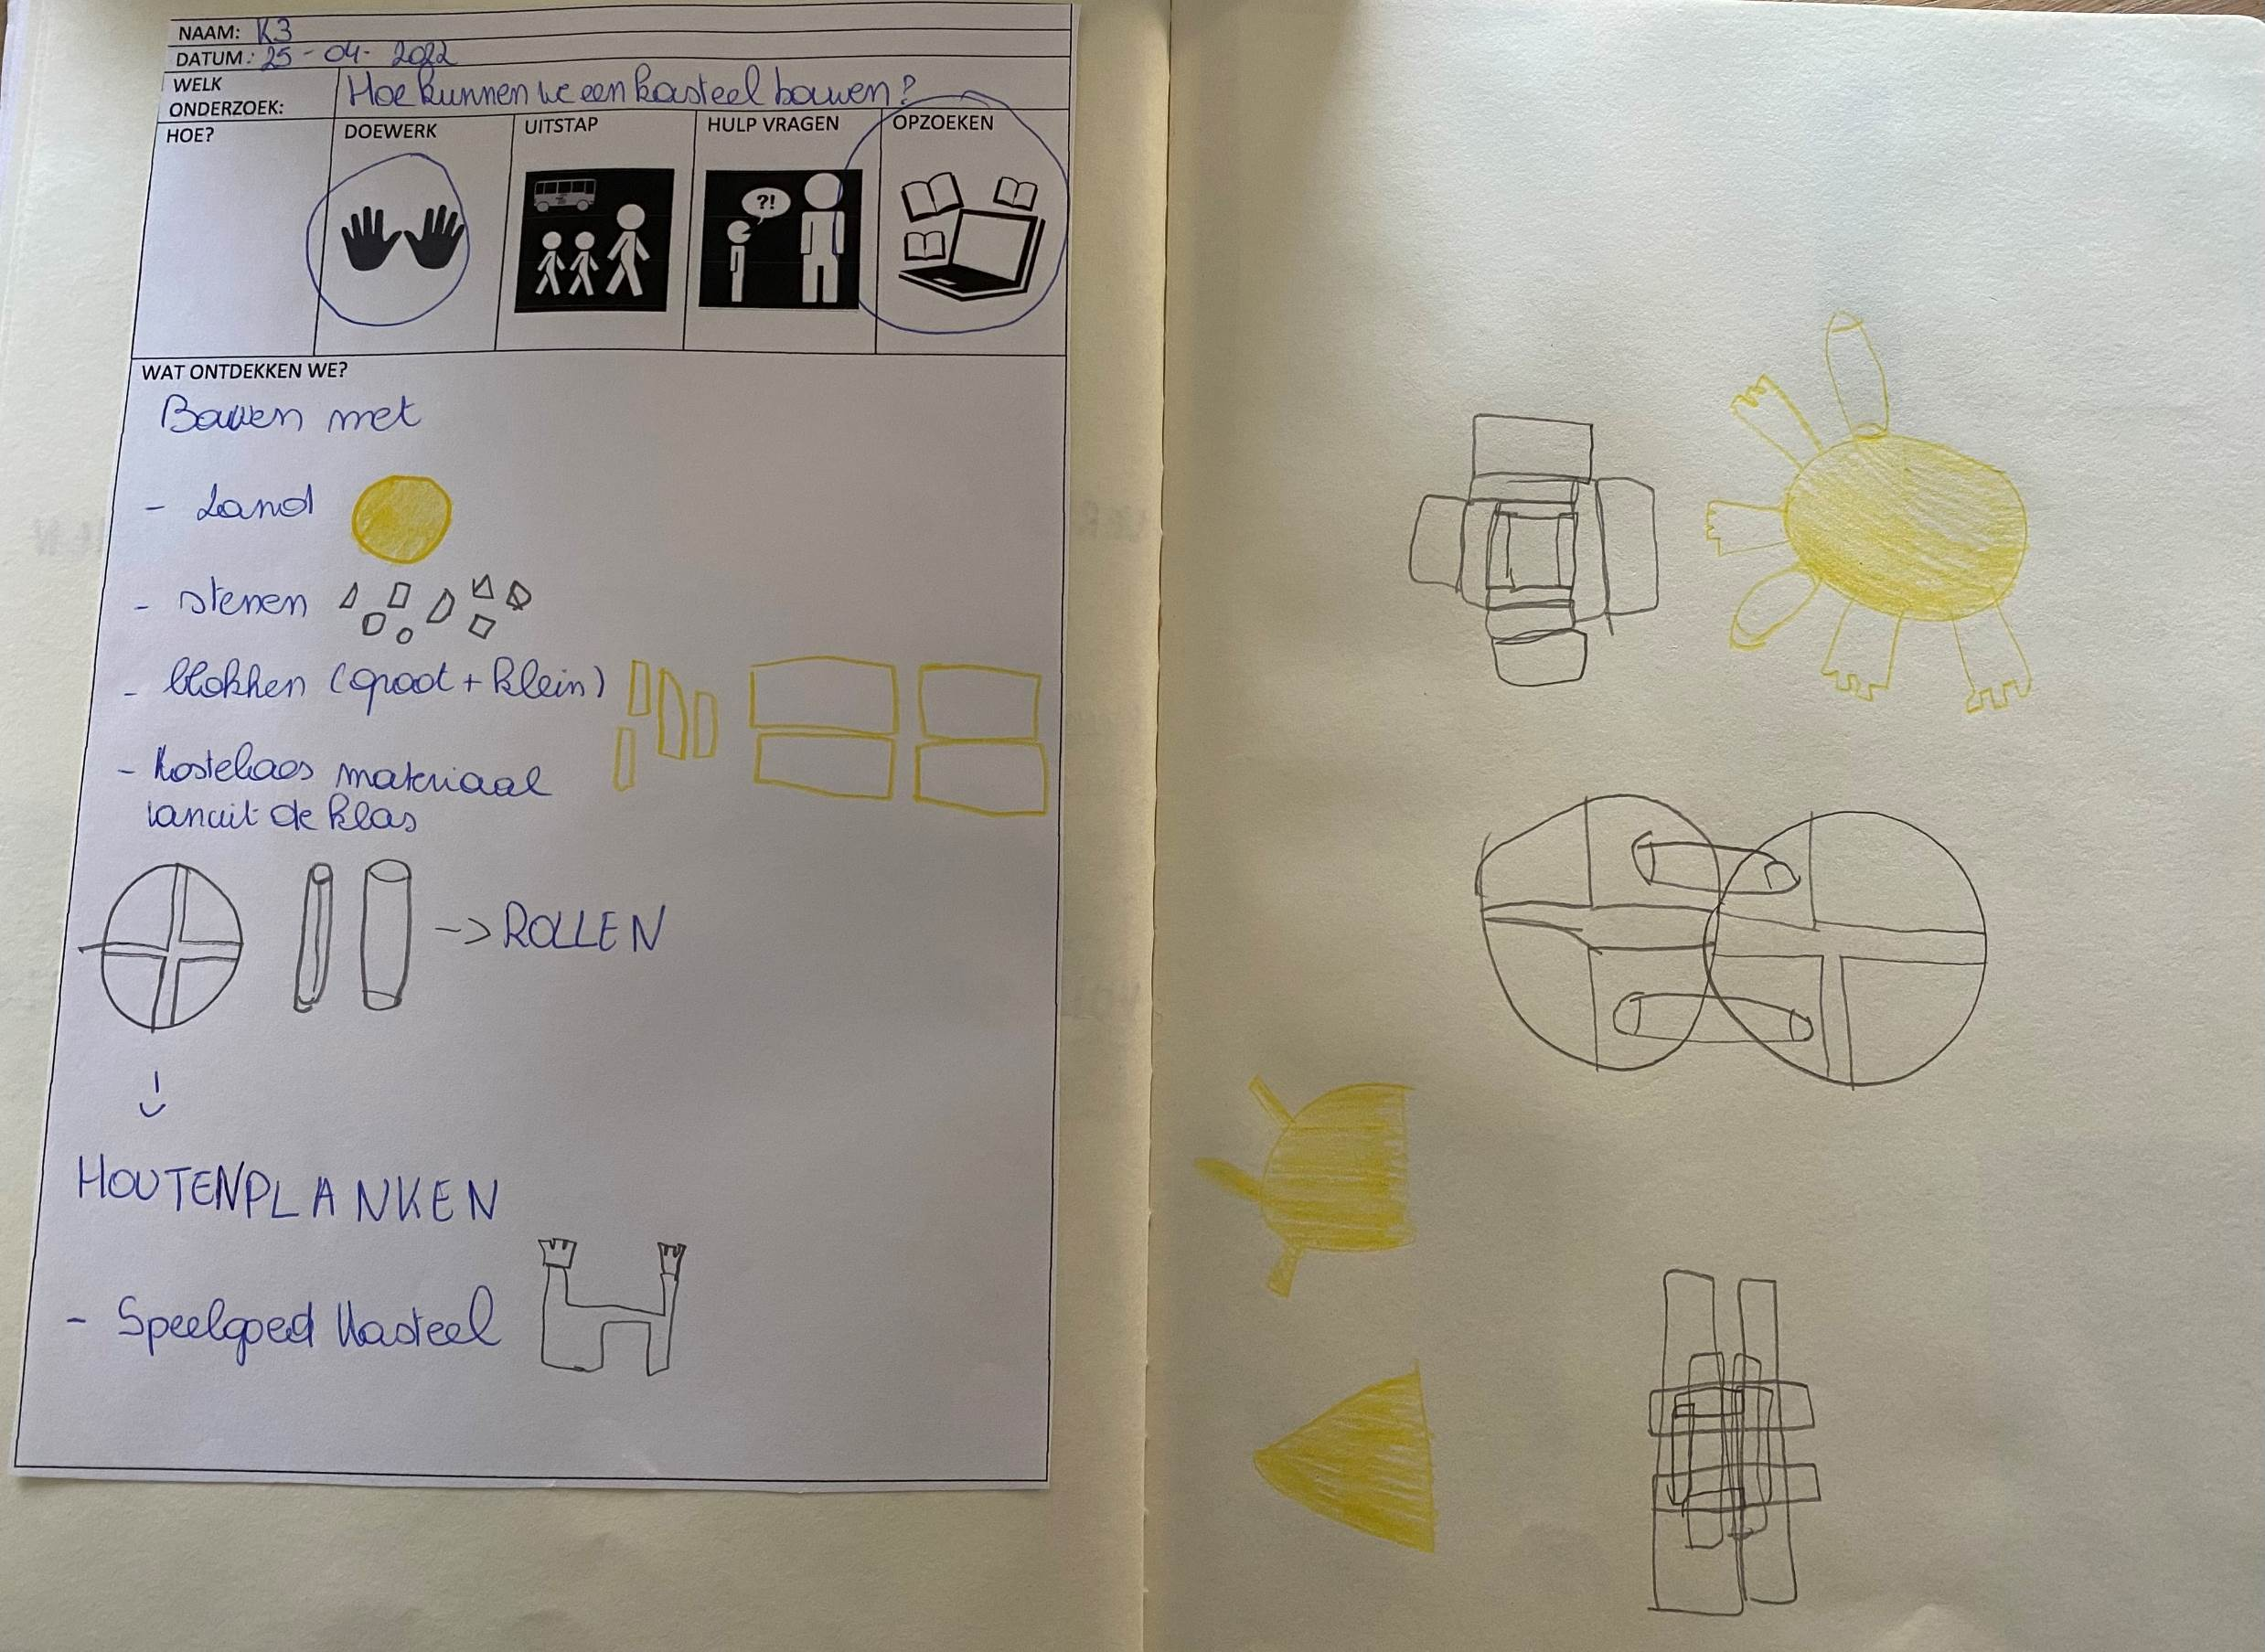 NAAM: K3
DATUM: 25-04-2022
WELK
ONDERZOEK: Hoe kunnen we een kasteel bouwen?
HOE? DOEWERK UITSTAP HULP VRAGEN OPZOEKEN
?!
WAT ONTDEKKEN WE?
Bouwen met
- Zand
- stenen
- blokken (groot + klein)
- Kosteloos materiaal
vanuit de klas
-> ROLLEN
HOUTENPLANKEN
- Speelgoed kasteel